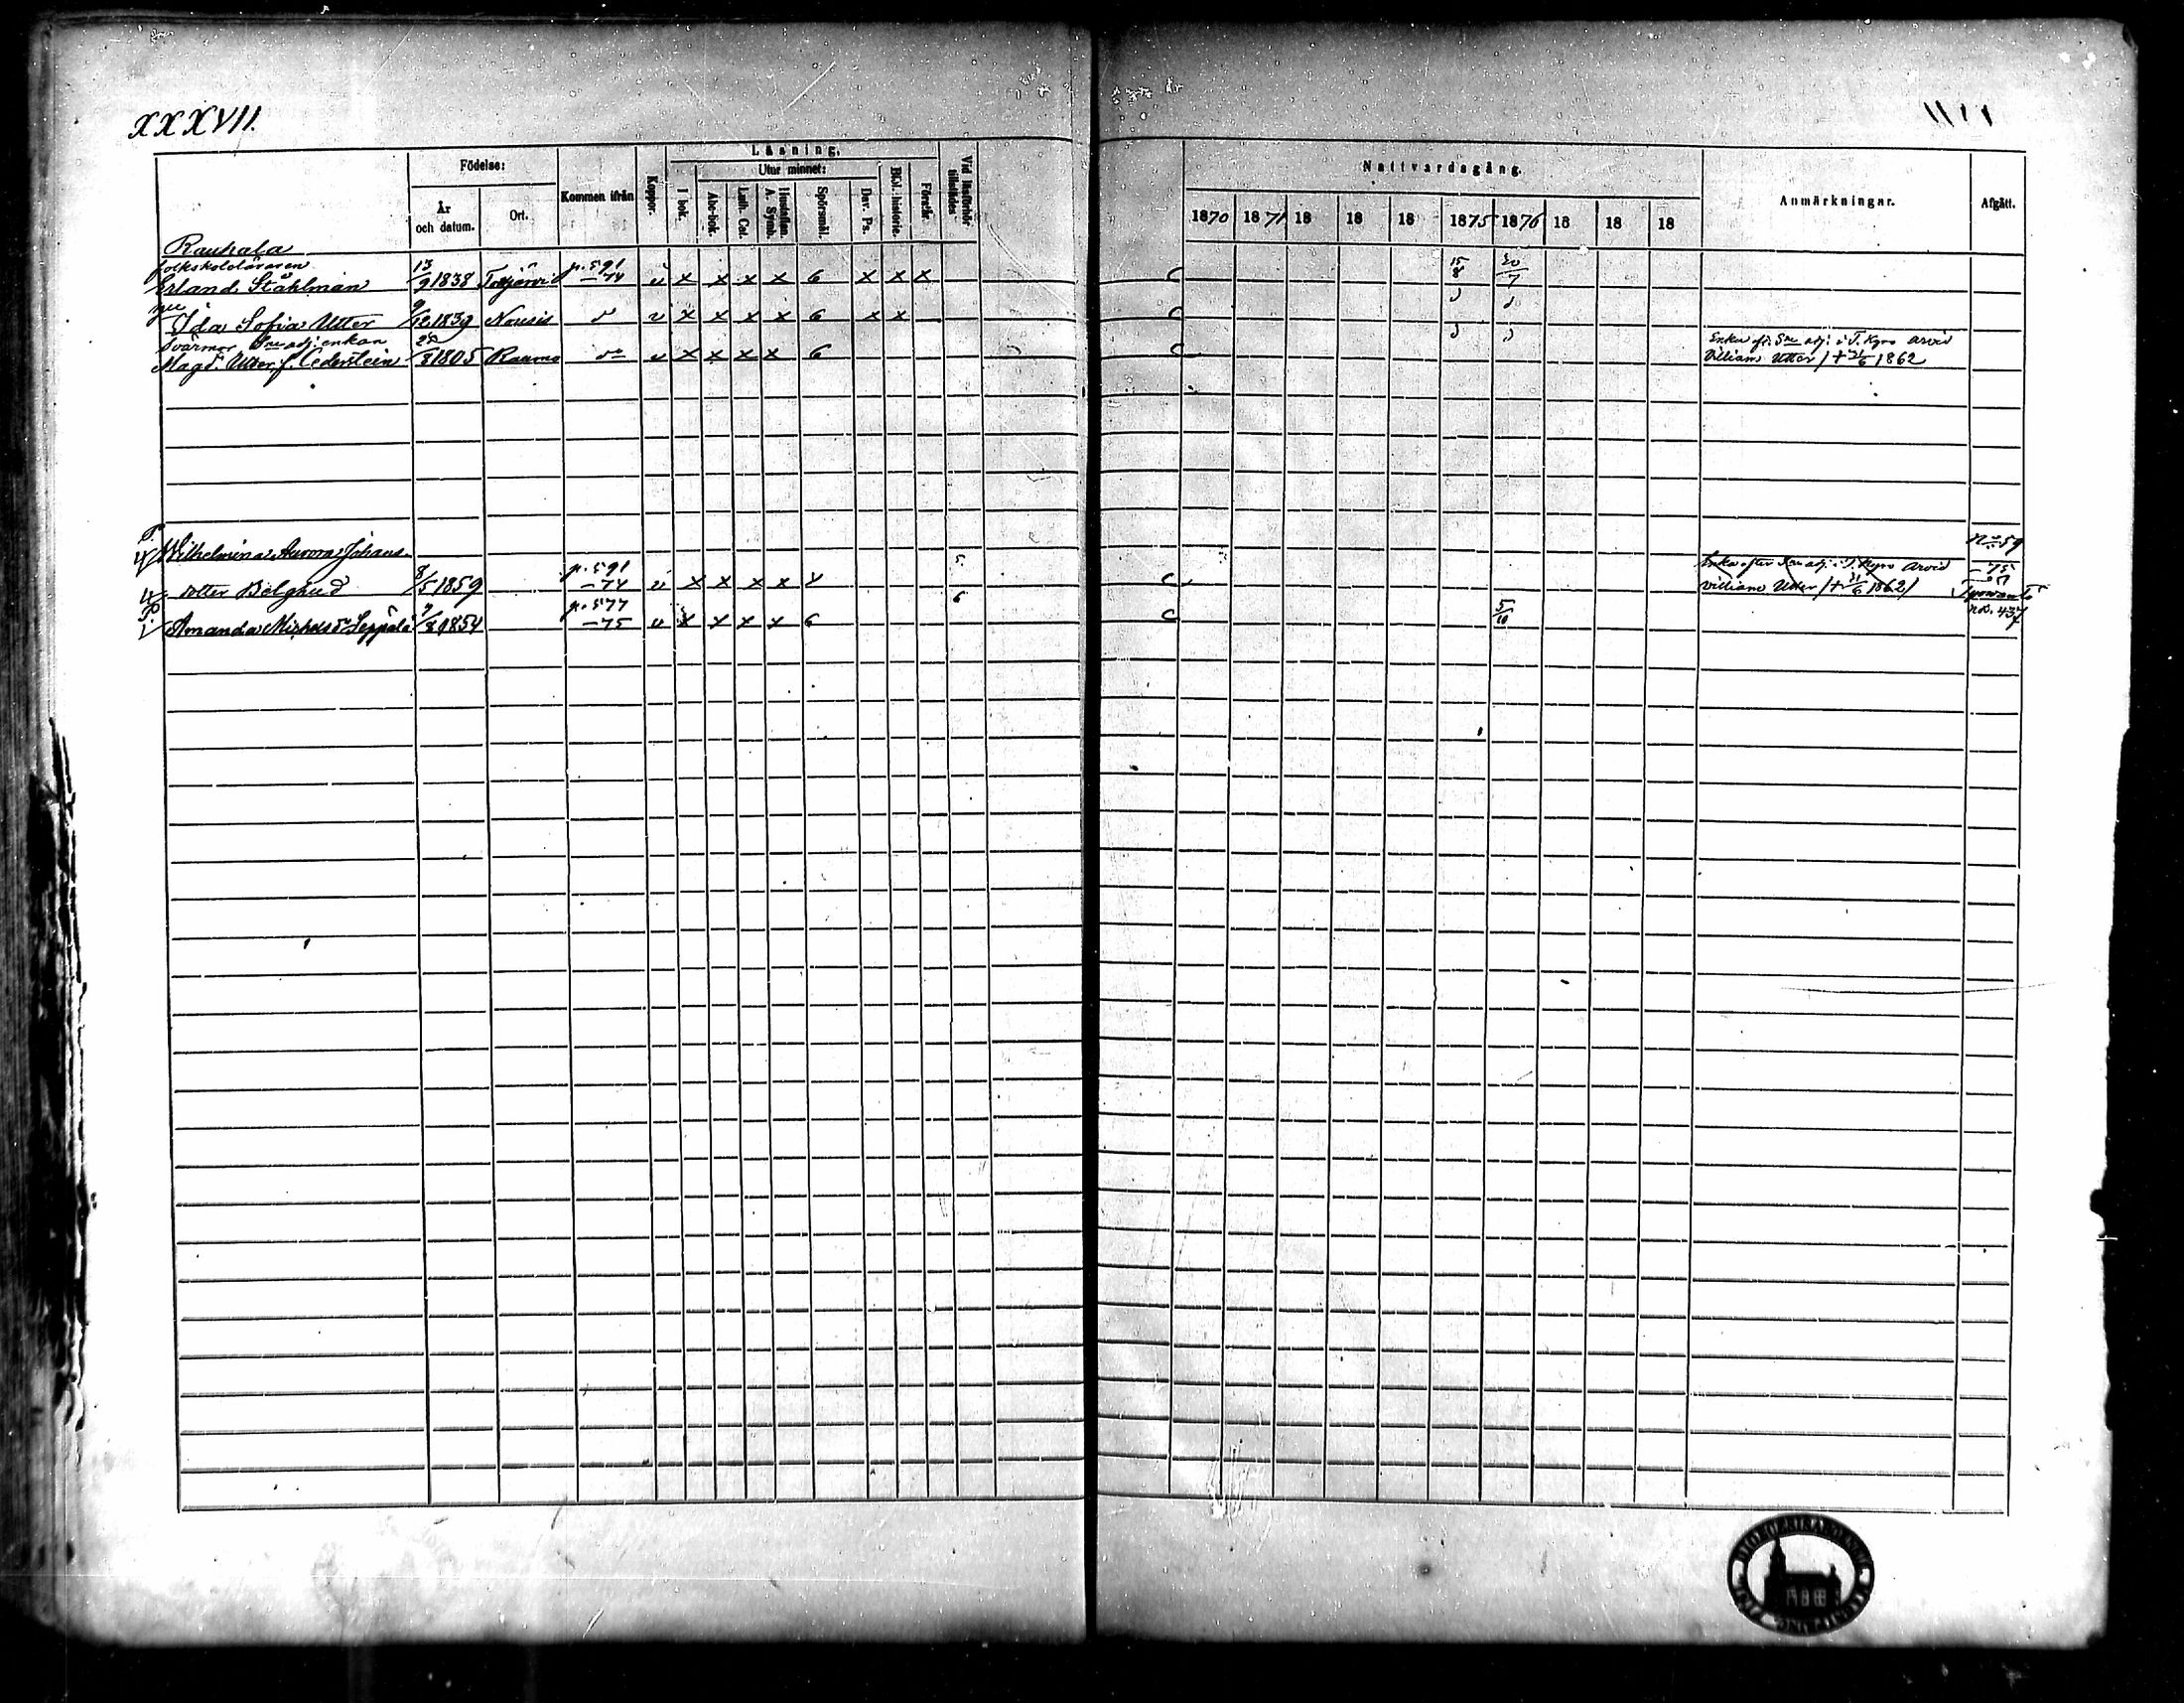 XXXVII.
Födelse:
År och datum.
Ort.
Kommen ifrån
Koppor.
Läsning.
I bok.
Utur minnet:
Abc-bok.
Luth. Cat.
Hustaflan. A. Symb.
Spörsmål.
Dav. Ps.
Bibl. historie.
Förstår.
Vid läsförhör tillstädes
Nattvardsgång.
1870 1871 18 18 18 1875 1876 18 18 18
Anmärkningar.
Afgått.
Rauhala
folkskoleläraren 13 p. 591 15 30
Erland Ståhlman 9 1838 — 74 v x x x x 6 x x x C 8 7
Ida Sofia Utter 9/12 1839 Nousis v x x x x 6 x x C
Svärmor enkan Enka eft. adj. i T. Kyro Arvid
Magd. Utter, f. Cederstein /8 1805 Raumo v x x x x 6 C Villiam Utter /† 6 1862
P. Wilhelmina Aurora Johans- 5 No 59
p. 591 Enka efter adj. i T. Kyro Arvid 75
dotter Bölgund 8/5 1859 — 74 v x x x x C Villiam Utter /† 6 1862/
p. 577 6 5
Amanda Michelsdr Seppälä 7/8 1854 — 75 v x x x x 6 C 10 no. 437